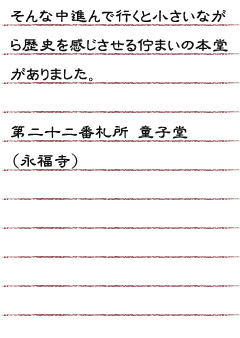 そんな中進んで行くと小さいなが
ら歴史を感じさせる佇まいの本堂
がありました。
第二十二番札所 童子堂
（永福寺）